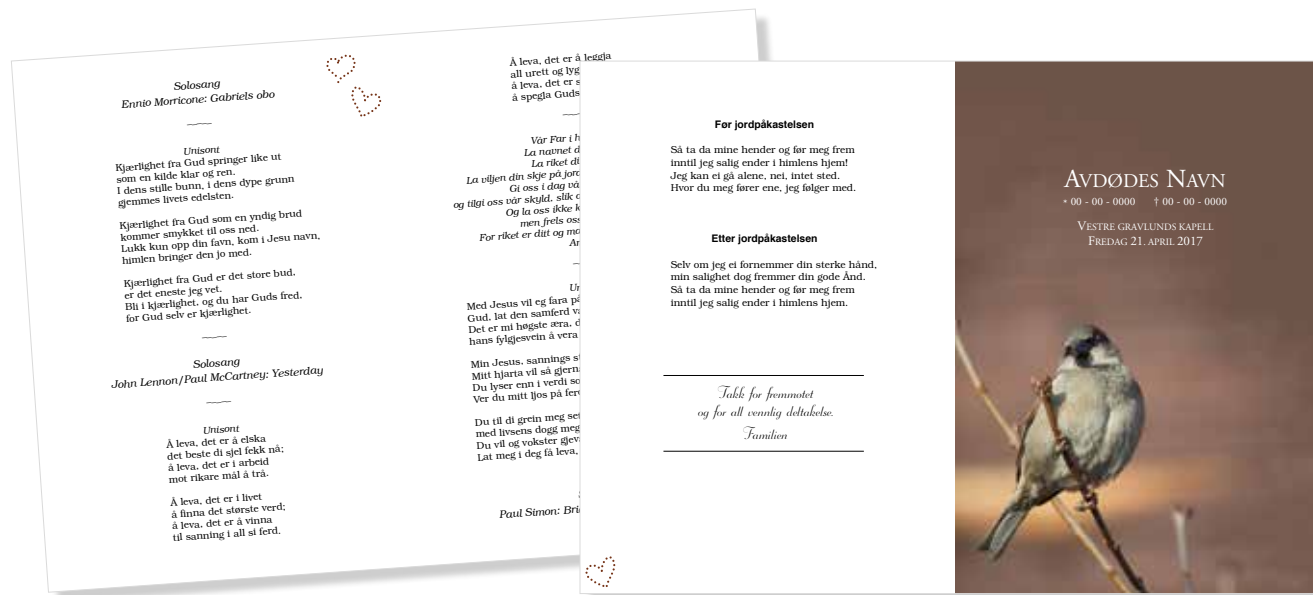 Solosang
Ennio Morricone: Gabriels obo
Unisont
Kjærlighet fra Gud springer like ut
som en kilde klar og ren.
I dens stille bunn, i dens dype grunn
gjemmes livets edelsten.
Kjærlighet fra Gud som en yndig brud
kommer smykket til oss ned.
Lukk kun opp din favn, kom i Jesu navn,
himlen bringer den jo med.
Kjærlighet fra Gud er det store bud,
er det eneste jeg vet.
Bli i kjærlighet, og du har Guds fred,
for Gud selv er kjærlighet.
Solosang
John Lennon/Paul McCartney: Yesterday
Unisont
Å leva, det er å elska
det beste di sjel fekk nå;
å leva, det er i arbeid
mot rikare mål å trå.
Å leva, det er i livet
å finna det største verd;
å leva, det er å vinna
til sanning i all si ferd.
Å leva, det er å leggja
all urett og
å leva, det er
å spegla Guds
Vår Far i
La navnet
La riket
La viljen din skje på
Gi oss i dag
og tilgi oss vår skyld, slik
Og la oss ikke
men frels
For riket er ditt og
Med Jesus vil eg fara
Gud, lat den samferd
Det er mi høgste æra,
hans fylgjesvein å vera
Min Jesus, sannings
Mitt hjarta vil så
Du lyser enn i verdi
Ver du mitt ljos på
Du til di grein meg
med livsens dogg
Du vil og vokster
Lat meg i deg få leva,
Paul Simon:
Før jordpåkastelsen
Så ta da mine hender og før meg frem
inntil jeg salig ender i himlens hjem!
Jeg kan ei gå alene, nei, intet sted.
Hvor du meg fører ene, jeg følger med.
Etter jordpåkastelsen
Selv om jeg ei fornemmer din sterke hånd,
min salighet dog fremmer din gode Ånd.
Så ta da mine hender og før meg frem
inntil jeg salig ender i himlens hjem.
Takk for fremmøtet
og for all vennlig deltakelse.
Familien
Avdødes Navn
* 00 - 00 - 0000 † 00 - 00 - 0000
Vestre gravlunds kapell
Fredag 21. april 2017